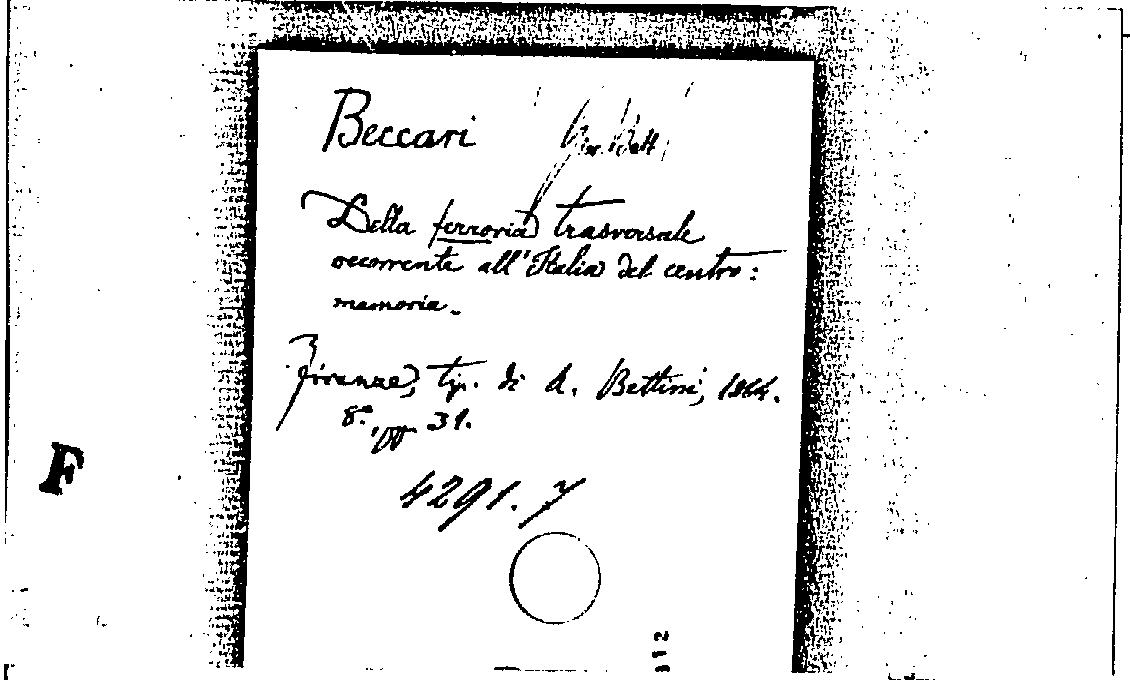 Beccari Gio. Batt.
Della ferrovia trasversale
occorrente all'Italia del centro:
memoria.
Firenze, tip. di A. Bettini, 1864.
8.° pp. 31.
4291. 7
F
312